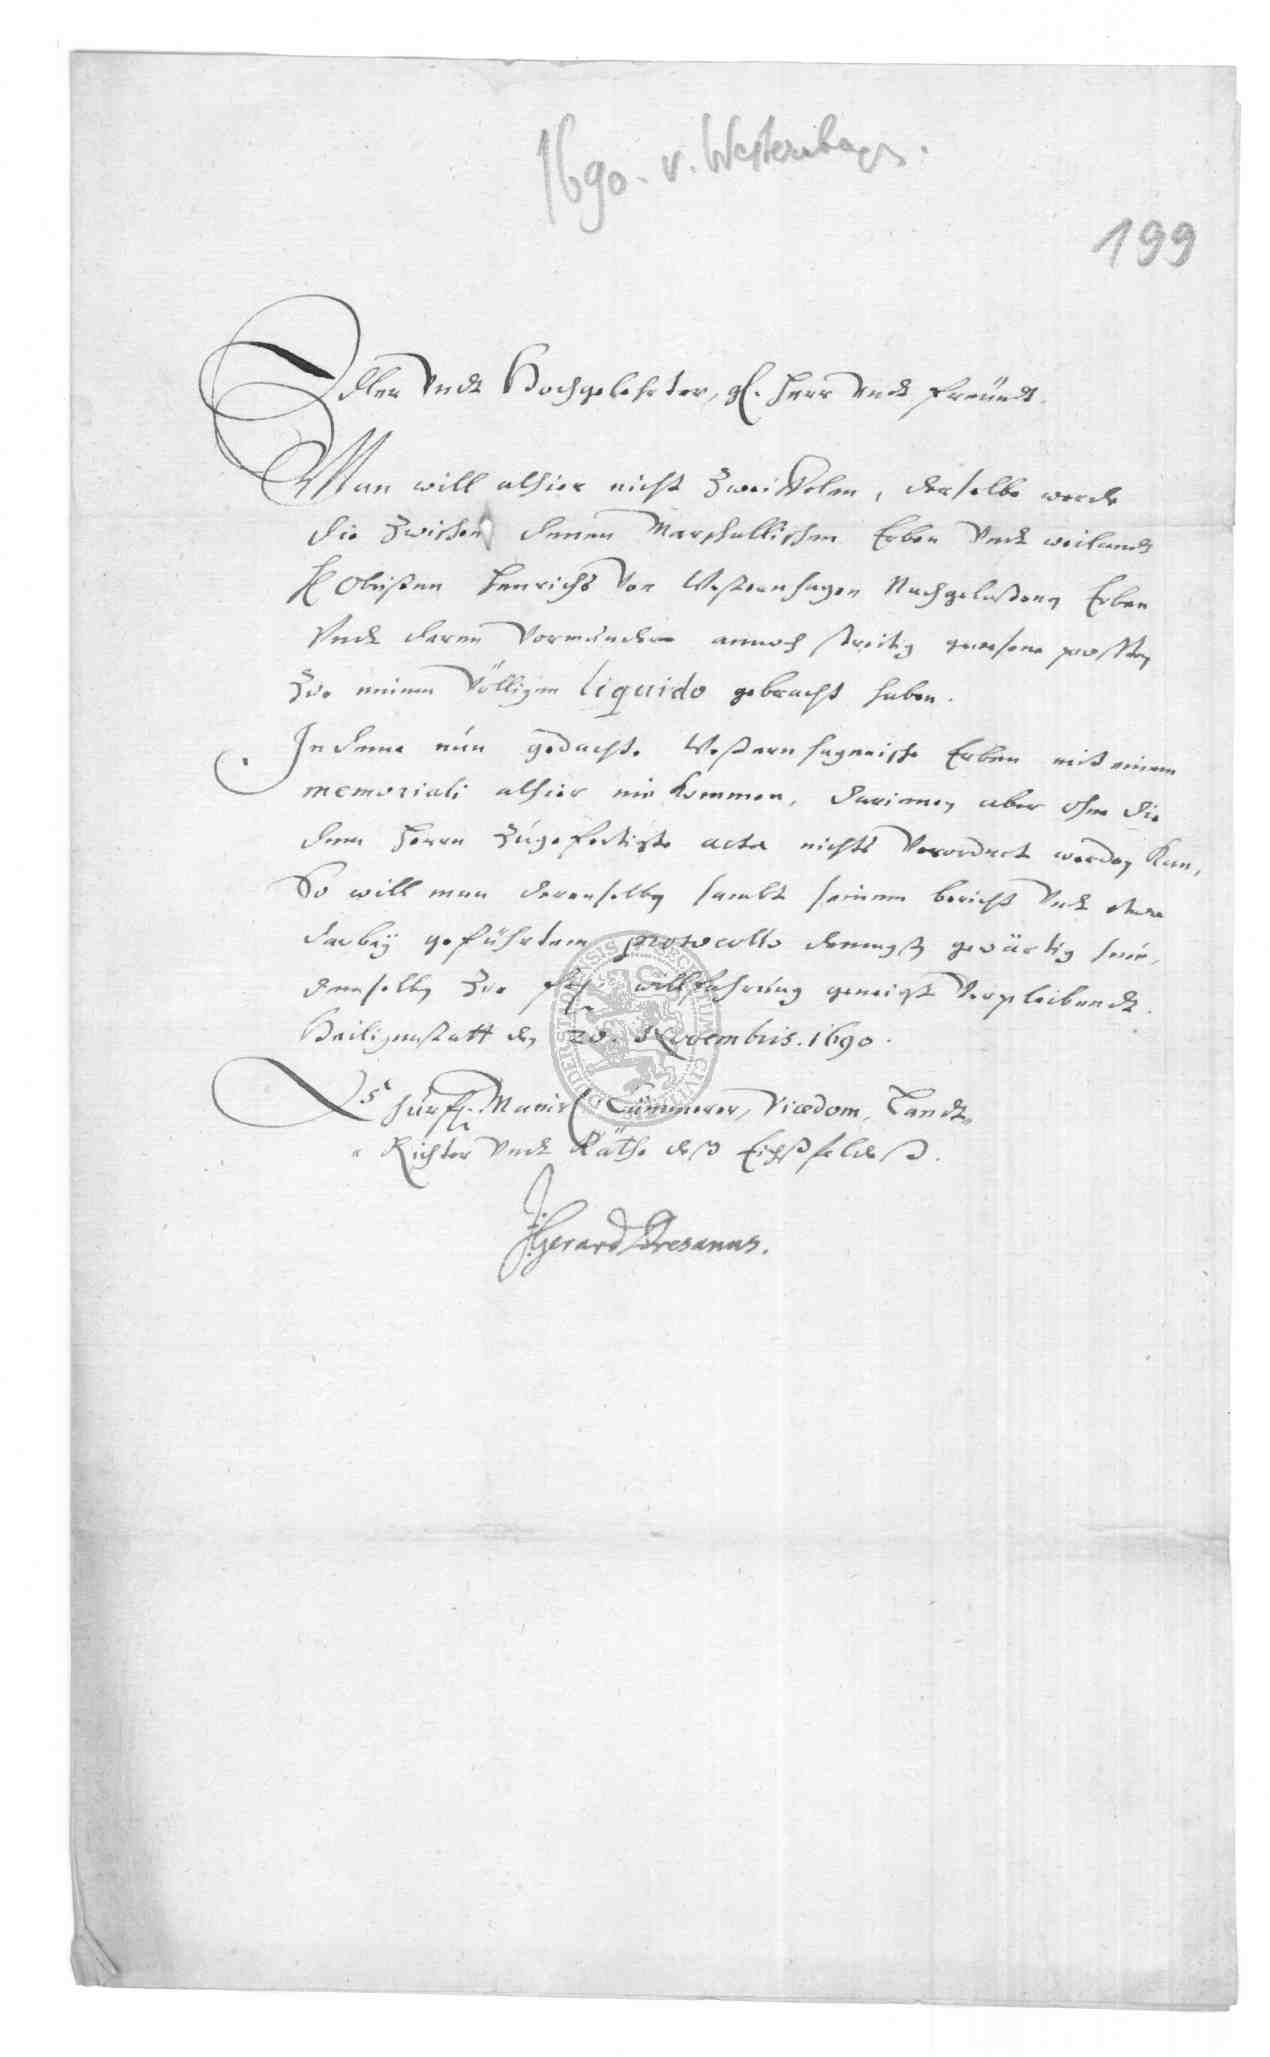 1690. v. Westernhagen.
199
Edler Undt Hochgelehrter, gl. Herr Undt Freündt.
Man will alhier nicht Zweiffelen, derselbe werde
die Zwischen denen Marschallischen Erben Undt weilandt
H Obristen Henrichs Von Westernhagen Nachgelaßenen Erben
Undt deren Vormünderen annoch streitig gewesene posten
Zue einem Völligen liquido gebracht haben.
Indeme nún gedachte Westernhagenische Erben mit einem
memoriali alhier ein kommen, darinnen aber ohne die
dem Herrn Zúgefertigte acta nichts Verordnet werden kan,
So will man derenselben sambt seinem bericht Undt
darbeÿ geführtem protocollo gewärtig sein,
demselben Zue willfahrúng geneigt Verpleibendt.
Heiligenstatt den 20. Novembris. 1690.
Chúrfl. Maintz. Cämmerer, Vicedom, Landt
Richter Undt Räthe deß Eichßfeldeß.
Gerard Dresanus.